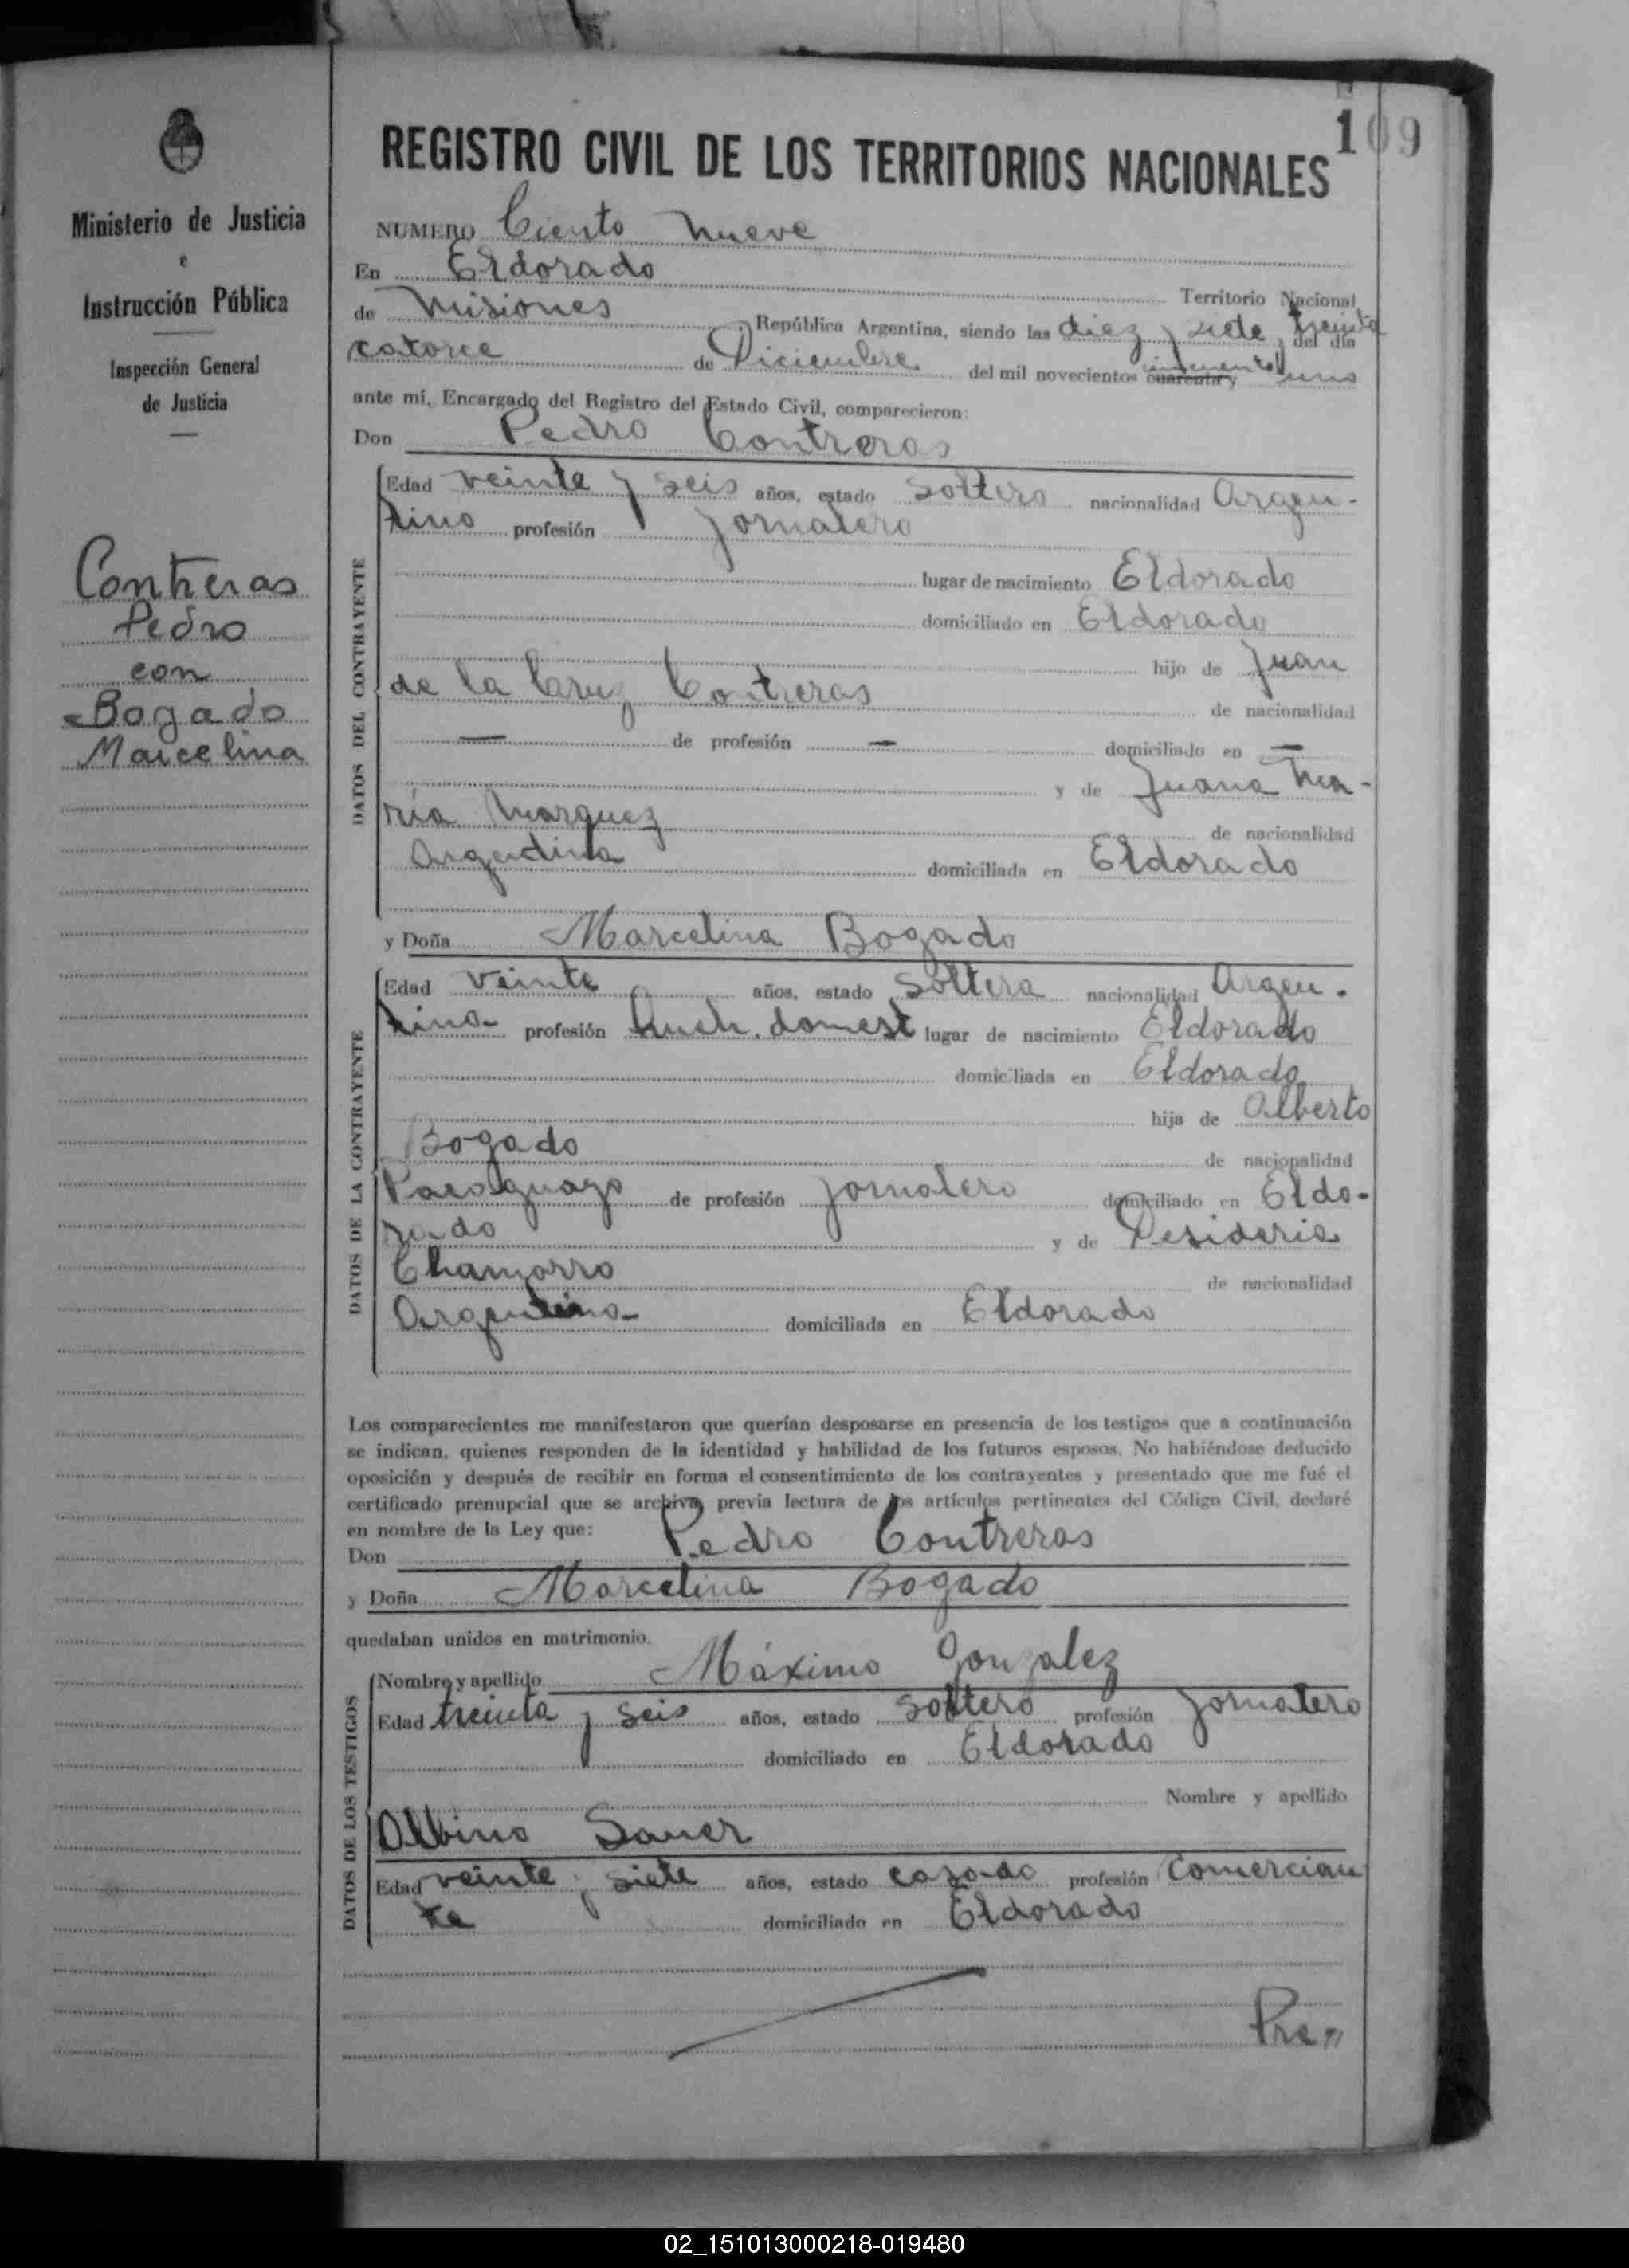 109
REGISTRO CIVIL DE LOS TERRITORIOS NACIONALES
Ministerio de Justicia
e
Instrucción Pública
Inspección General
de Justicia
Contreras
Pedro
con
Bogado
Marcelina
NUMERO Ciento nueve
En Eldorado Territorio Nacional
de Misiones República Argentina, siendo las diez y siete y treinta del día
catorce de Diciembre del mil novecientos cuarenta y cincuenta y uno
ante mí, Encargado del Registro del Estado Civil, comparecieron:
Don Pedro Contreras
DATOS DEL CONTRAYENTE
Edad veinte y seis años, estado soltero nacionalidad Argen-
tino profesión jornalero
lugar de nacimiento Eldorado
domiciliado en Eldorado
hijo de Juan
de la Cruz Contreras de nacionalidad
— de profesión — domiciliado en —
y de Juana Ma-
ría Marquez de nacionalidad
Argentina domiciliada en Eldorado
y Doña Marcelina Bogado
DATOS DE LA CONTRAYENTE
Edad veinte años, estado soltera nacionalidad Argen-
tina profesión domest lugar de nacimiento Eldorado
domiciliada en Eldorado
hija de Alberto
Bogado de nacionalidad
Paraguayo de profesión jornalero domiciliado en Eldo-
rado y de Desideria
Chamorro de nacionalidad
Argentina domiciliada en Eldorado
Los comparecientes me manifestaron que querían desposarse en presencia de los testigos que a continuación
se indican, quienes responden de la identidad y habilidad de los futuros esposos. No habiéndose deducido
oposición y después de recibir en forma el consentimiento de los contrayentes y presentado que me fué el
certificado prenupcial que se archiva, previa lectura de los artículos pertinentes del Código Civil, declaré
en nombre de la Ley que:
Don Pedro Contreras
y Doña Marcelina Bogado
quedaban unidos en matrimonio.
DATOS DE LOS TESTIGOS
Nombre y apellido Máximo Gonzalez
Edad treinta y seis años, estado soltero profesión jornalero
domiciliado en Eldorado
Nombre y apellido
Albino Sauer
Edad veinte y siete años, estado casado profesión Comercian
te domiciliado en Eldorado
Pre"
02_151013000218-019480